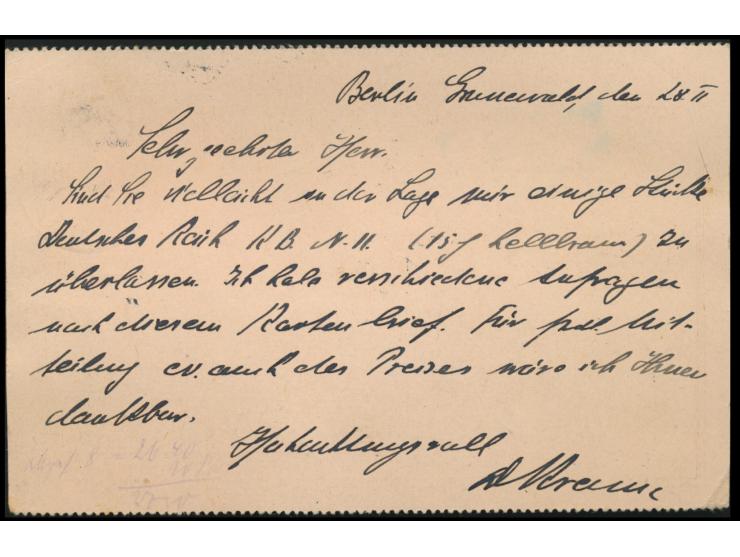 Berlin Grunewald, den 28 II
Sehr geehrter Herr.
Sind Sie vielleicht in der Lage mir einige Stücke
Deutsches Reich K B. N. 11. (15 ₰ hellbraun) zu
überlassen. Ich habe verschiedene Anfragen
nach diesem Kartenbrief. Für frdl. Mit-
teilung ev. auch des Preises wäre ich Ihnen
dankbar.
Hochachtungsvoll